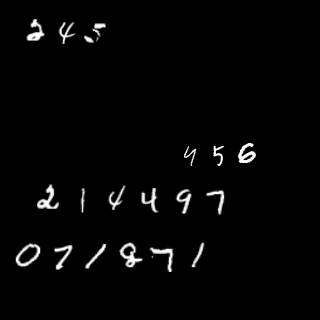 245
456
214497
071871